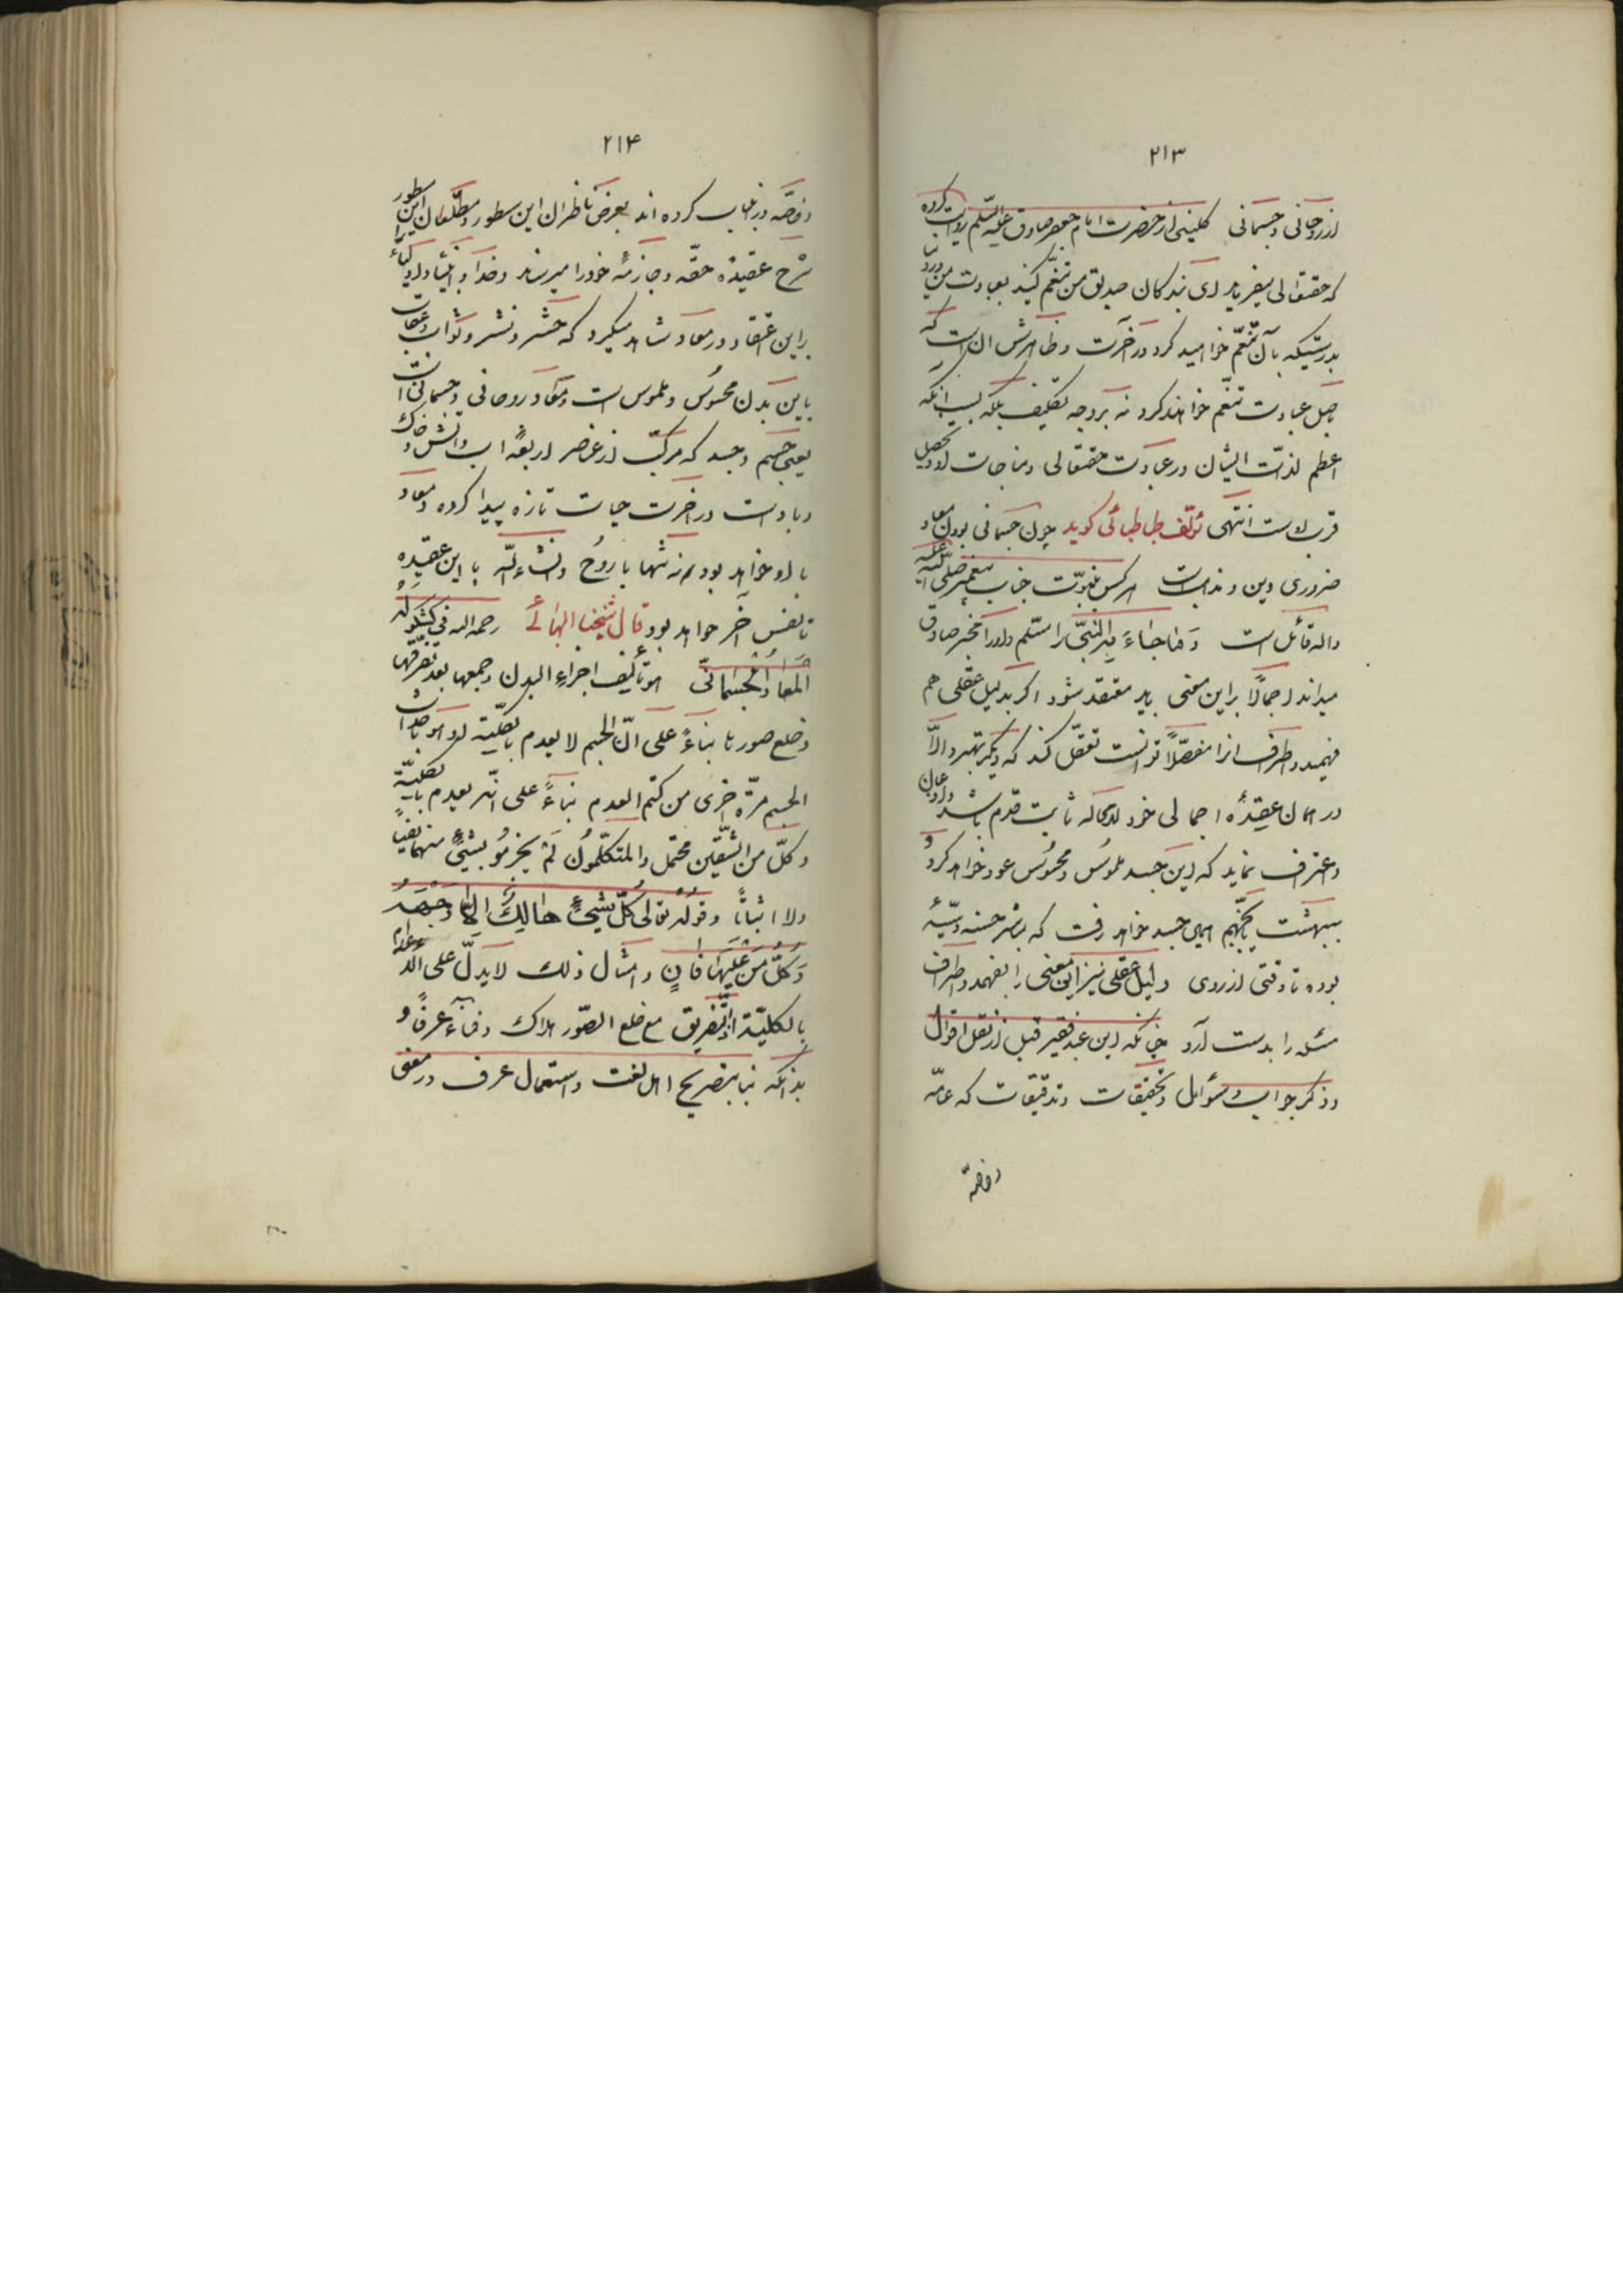 ۲۱۳
از روحانی و جسمانی کلینی از حضرت امام جعفر صادق علیه السّلم روایت کرده
که حقتعالی میفرماید ای بندکان صدیق من تنعّم کنید بعبادت من در دنیا
بدرستیکه بآن تنعّم خواهید کرد در آخرت و ظاهرش ان است که
باصل عبادت تنعّم خواهند کرد نه بر وجه تکلیف بلکه بسبب انکه
اعظم لذّات ایشان در عبادت حقتعالی و مناجات او و تحصیل
قرب اوست انتهی مؤلّف طباطبائی کوید چون جسمانی بودن معاد
ضروری دین و مذهبست هر کس بنبوّت جناب پیغمبر صلّی الله علیه
واله قائل است وَ ما جاءَ بِهِ النّبیّ را مسلّم و او را مخبر صادق
میداند اجمالًا براین معنی باید معتقد شود اکر بدلیل عقلی هم
فهمید و اطراف انرا مفصّلًا توانست تعقّل کند که دیکر بهتر و الاّ
در همان عقیدۀ اجمالی خود لامحاله ثابت قدم باشد و اذعان
و اعتراف نماید که این جسد ملموس و محسوس عود خواهد کرد و
ببهشت یا بجهنّم همین جسد خواهد رفت که مباشر حسنه و سیّئه
بوده تا وقتی از روی دلیل عقلی نیز این معنی را بفهمد و اطراف
مسئله را بدست آرد چنانکه این عبد فقیر قبل از نقل اقوال
و ذکر جواب و سؤال و تحقیقات و تدقیقات که عامّه
و خاصّه
۲۱۴
و خاصّه در نباب کرده اند بعرض ناظران این سطور و مطّلعان این سطور
شرح عقیدۀ حقّه و جازمۀ خود را میرساند و خدا و انبیا و اولیاء را
براین اعتقاد در معاد شاهد میکیرد که حشر و نشر و ثواب و عقاب
باین بدن محسوس و ملموس است و معاد روحانی و جسمانی است
یعنی جسم و جسد که مرکّب از عناصر اربعه اب و اتش و خاک
و باد است در اخرت حیات تازه پیدا کرده و معاد
با او خواهد بود نه تنها با روح و انشاءالله با این عقیده
تا نفس آخر خواهد بود قال شیخنا البهائی رحمه الله فی کشکوله
المعاد الجسمانیّ هو تألیف اجزاء البدن و جمعها بعد تفرّقها
و خلع صورها بناءً علی انّ الجسم لا یعدم بالکلّیة او هو احداث
الجسم مرّة اخری من کتم العدم بناءً علی انّه یعدم بالکلّیّة
و کلّ من الشّقّین محتمل و المتکلّمون لم یجزموا بشیءٍ منهما نفیاً
ولا اثباتاً و قوله تعالی کلّ شیءٍ هالِكٌ اِلّا وَجْهَهُ
وَ کُلُّ مَنْ عَلَیْهَا فَانٍ و امثال ذلك لا یدلّ علی الاعدام
بالکلیّة اذ التّفریق مع خلع الصّور هلاك و فناء عرفاً و
بدانکه بنا بتصریح اهل لغت و استعمال عرف در معنی